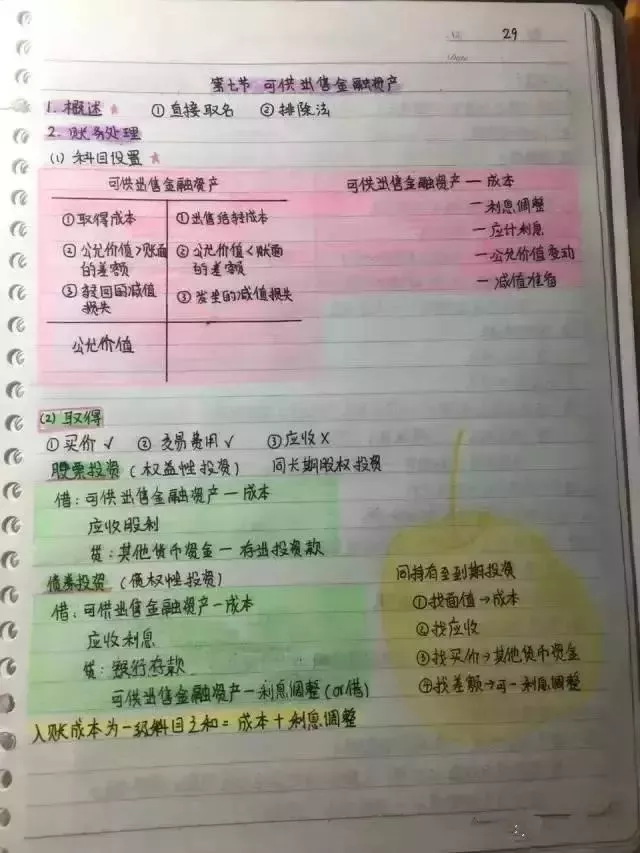 No. 29
Date
第七节 可供出售金融资产
1. 概述 ★ ①直接取名 ②排除法
2. 账务处理
(1) 科目设置 ★
可供出售金融资产
①取得成本
②公允价值>账面的差额
③转回的减值损失
公允价值
①出售结转成本
②公允价值<账面的差额
③发生的减值损失
可供出售金融资产—成本
—利息调整
—应计利息
—公允价值变动
—减值准备
(2) 取得
①买价√ ②交易费用√ ③应收×
股票投资(权益性投资) 同长期股权投资
借:可供出售金融资产—成本
应收股利
贷:其他货币资金—存出投资款
债券投资(债权性投资)
借:可供出售金融资产—成本
应收利息
贷:银行存款
可供出售金融资产—利息调整(or借)
同持有至到期投资
①找面值→成本
②找应收
③找买价→其他货币资金
④找差额→可—利息调整
入账成本为一级科目之和=成本+利息调整